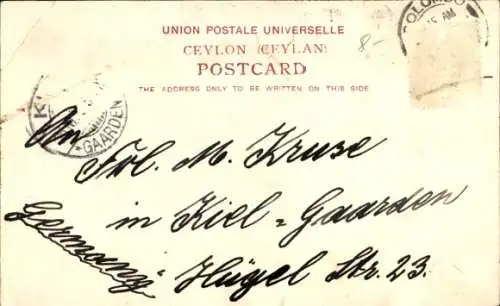 UNION POSTALE UNIVERSELLE
CEYLON (CEYLAN)
POSTCARD
THE ADDRESS ONLY TO BE WRITTEN ON THIS SIDE
8-
COLOMBO
AM
GAARDEN
An
Frl. M. Kruse
in Kiel = Gaarden
Hügel Str. 23.
Germany